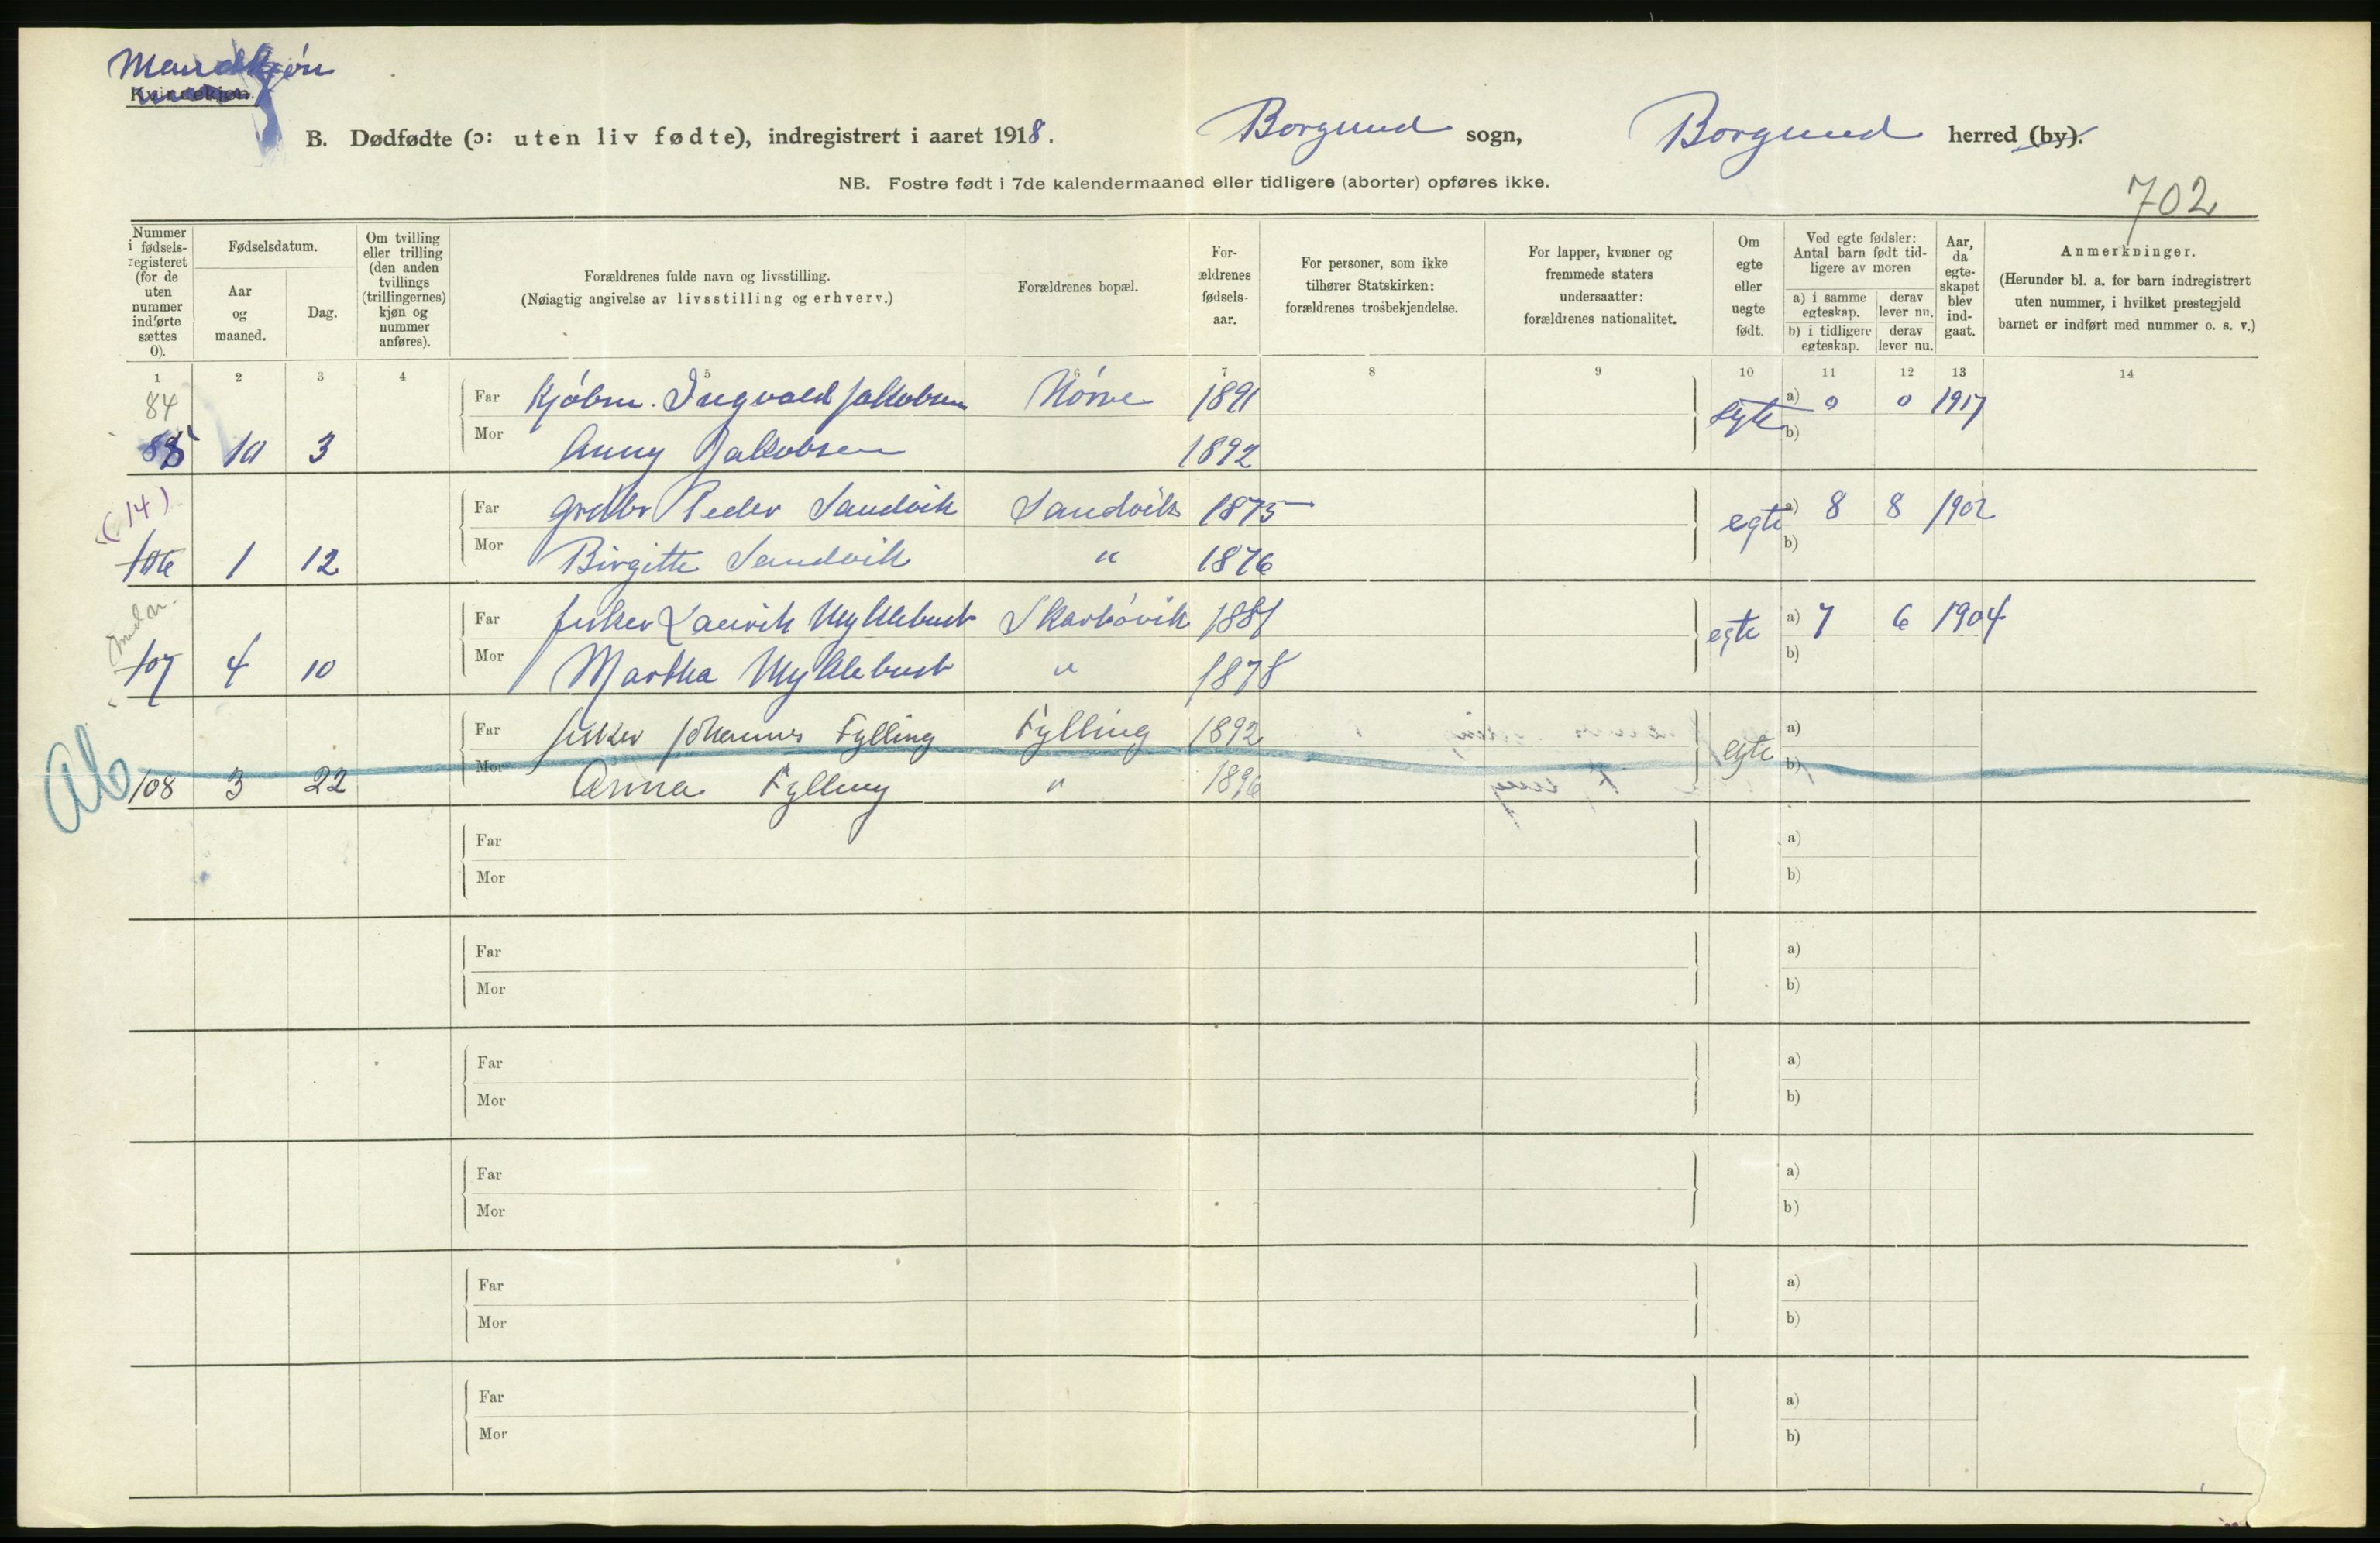 Mandkjøn
Kvindekjøn.
B. Dødfødte (ɔ: uten liv fødte), indregistrert i aaret 1918. Borgund sogn, Borgund herred (by).
NB. Fostre født i 7de kalendermaaned eller tidligere (aborter) opføres ikke.
702
Nummer i fødsels-registeret (for de uten nummer indførte sættes 0).
Fødselsdatum.
Aar og maaned.
Dag.
Om tvilling eller trilling (den anden tvillings (trillingernes) kjøn og nummer anføres).
Forældrenes fulde navn og livsstilling.
(Nøiagtig angivelse av livsstilling og erhverv.)
Forældrenes bopæl.
For-ældrenes fødsels-aar.
For personer, som ikke tilhører Statskirken: forældrenes trosbekjendelse.
For lapper, kvæner og fremmede staters undersaatter: forældrenes nationalitet.
Om egte eller uegte født.
Ved egte fødsler: Antal barn født tid-ligere av moren
a) i samme egteskap. derav lever nu.
b) i tidligere egteskap. derav lever nu.
Aar, da egte-skapet blev ind-gaat.
Anmerkninger.
(Herunder bl. a. for barn indregistrert uten nummer, i hvilket prestegjeld barnet er indført med nummer o. s. v.)
1 2 3 4 5 6 7 8 9 10 11 12 13 14
84
Far Kjøbm. Ingvald Jakobsen Nørve 1891 egte a) 0 0 1917
88 10 3 Mor Anny Jakobsen 1892 b)
(14)
Far grdbr Peder Sandvik Sandvik 1875 egte a) 8 8 1902
106 1 12 Mor Birgitte Sandvik " 1876 b)
Far fisker Laurits Myklebust Skarbøvik 1881 egte a) 7 6 1904
107 4 10 Mor Martha Myklebust " 1878 b)
Far fisker Johannes Fylling Fylling 1892 egte a)
Ab 108 3 22 Mor Anna Fylling " 1896 b)
Far a)
Mor b)
Far a)
Mor b)
Far a)
Mor b)
Far a)
Mor b)
Far a)
Mor b)
Far a)
Mor b)